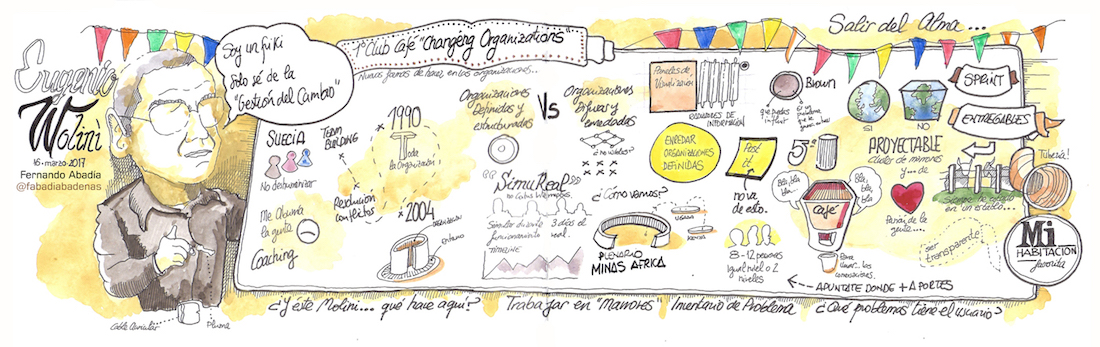 Eugenio
Molini
16 • marzo • 2017
Fernando Abadía
@fabadiabadenas
Soy un friki
Solo sé de la
"Gestión del Cambio"
1er Club Café "Changing Organizations"
Nuevas formas de hacer, en las organizaciones...
Salir del Alma...
SUECIA
No deshumanizar
Me aburría
la gente
Coaching
TEAM
BUILDING
Resolución
conflictos
1990
Toda
la Organización
2004
ORGANIZACIÓN
ENTORNO
Organizaciones
Definidas y
estructuradas
Vs
Organizaciones
Difusas y
enredadas
¿No nodos?
SimuReal
no Cubos Intermedios
3 días
real.
funcionamiento
TIMELINE
¿Cómo vamos?
PLENARIO
MINAS AFRICA
Paneles de
Visualización
RADIADORES DE INFORMACIÓN
ENREDAR
ORGANIZACIONES
DEFINIDAS
Post
it
no va
de esto.
8 - 12 personas
Igual nivel o 2
niveles
Brown
5º
SI
NO
PROYECTABLE
y... de
Bla, bla,
bla...
Bla,
bla,
bla
Café
Para
conversaciones.
Pasar de la
gente...
ser
transparente
SPRINT
ENTREGABLES
Tubería!
Mi
HABITACIÓN
favorita
APÚNTATE DONDE + APORTES
¿Y este Molini... qué hace aquí?
Trabajar en "Marrones"
Inventario de Problema
¿Qué problemas tiene el usuario?
Cable Auricular
Pluma